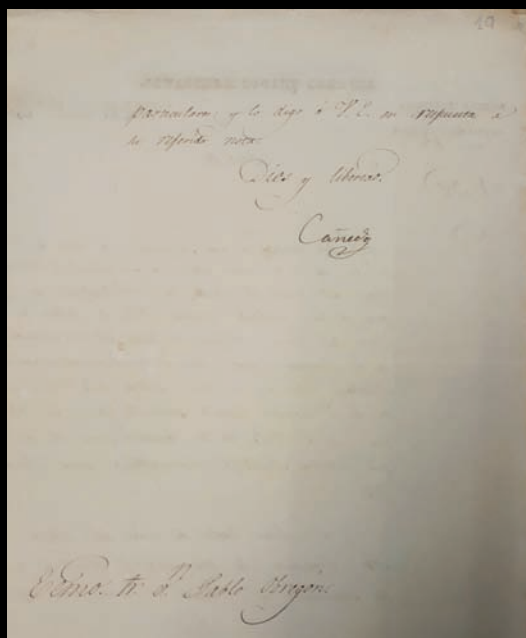 19
particulares; y lo digo á V.E. en respuesta á
su referida nota.
Dios y libertad.
Cañedo
Exmo. Sr. D. Pablo Obregon.